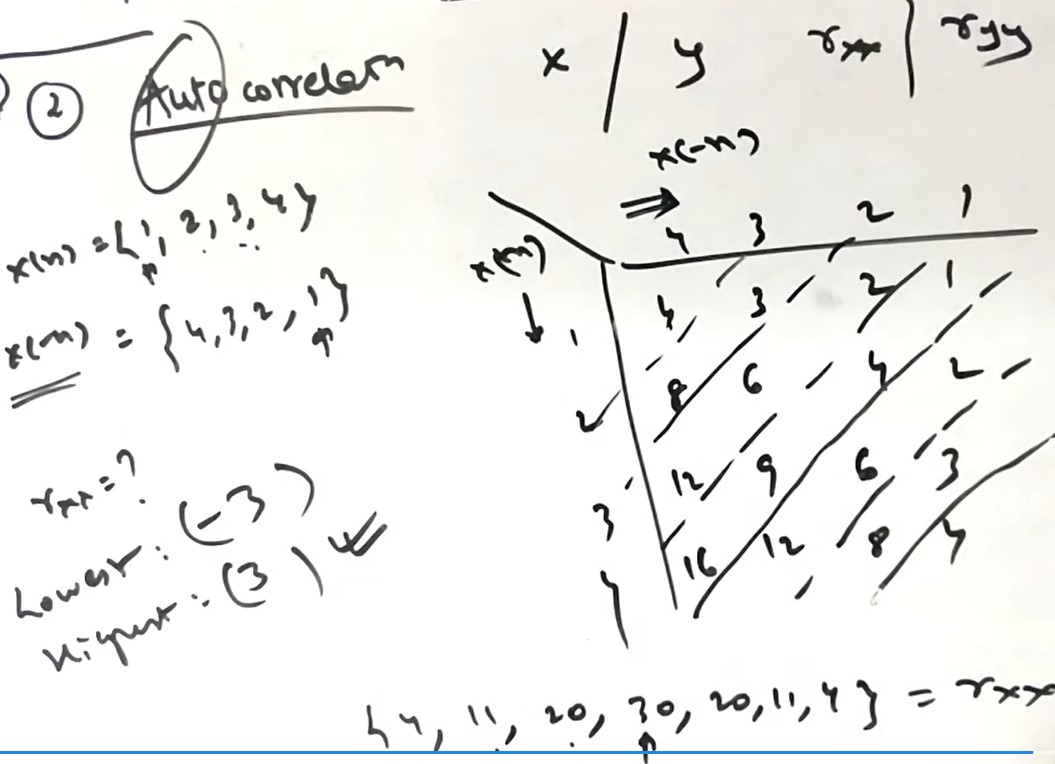 ② Auto correlatn
x(n) = {1, 2, 3, 4}
↑
x(-n) = {4, 3, 2, 1}
↑
rxx = ?
Lowest : (-3)
Highest : (3)
x | y rxx | ryy
⇒ x(-n)
4 3 2 1
x(n) ↓
1 4 3 2 1
2 8 6 4 2
3 12 9 6 3
4 16 12 8 4
{4, 11, 20, 30, 20, 11, 4} = rxx
↑